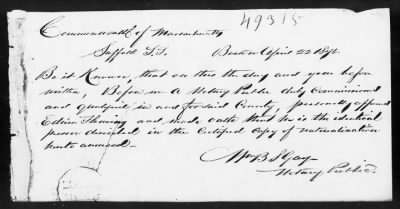 49315
Commonwealth of Massachusetts
Suffolk S.S. Boston April 22 187
Be it Known, that on this the day and year before
written, Before me A Notary Public duly Commissioned
and qualified in and for said County, personally appeared
Edwin and made oath that he is the identical
person described in the Certified Copy of naturalization
hereto annexed.
Wm B S Gay
Notary Public.